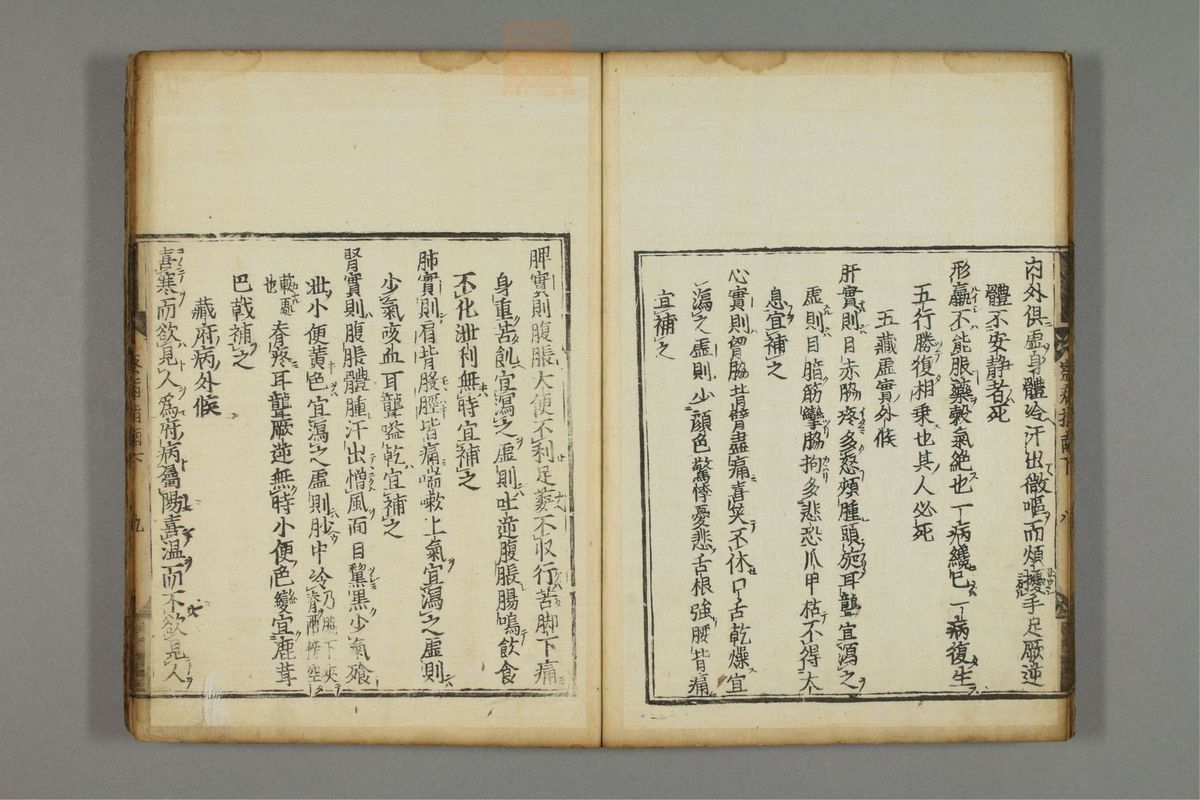 内外俱虛身體冷汗出微嘔而煩擾手足厥逆
體不安靜者死
形羸不能服藥穀氣絶也一病纔已一病復生
五行勝復相乘也其人必死
五藏虛實外候
肝實則目赤脇疼多怒頰腫頭旋耳聾宜瀉之
虛則目暗筋攣脇拘多悲恐爪甲枯不得太
息宜補之
心實則胷脇背臂盡痛喜笑不休口舌乾燥宜
瀉之虛則少顔色驚悸憂悲舌根強腰背痛
宜補之
脾實則腹脹大便不利足萎不收行苦脚下痛
身重苦飢宜瀉之虛則吐逆腹脹腸鳴飲食
不化泄利無時宜補之
肺實則肩背股脛皆痛喘嗽上氣宜瀉之虛則
少氣咳血耳聾嗌乾宜補之
腎實則腹脹體腫汗出憎風面目黧黑少氣飱
泄小便黃色宜瀉之虛則䏚中冷乃脇下夾脊兩傍空
軟處也脊疼耳聾厥逆無時小便色變宜鹿茸
巴戟補之
藏府病外候
喜寒而欲見人爲府病屬陽喜溫而不欲見人